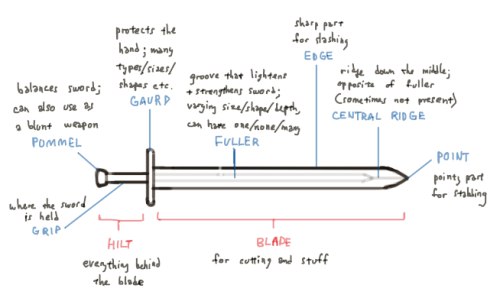 balances sword;
can also use as
a blunt weapon
POMMEL
protects the
hand; many
types/sizes/
shapes etc.
GAURD
groove that lightens
+ strengthens sword;
varying size/shape/depth,
can have one/none/many
FULLER
sharp part
for slashing
EDGE
ridge down the middle;
opposite of fuller
(sometimes not present)
CENTRAL RIDGE
POINT
pointy part
for stabbing
where the sword
is held
GRIP
HILT
everything behind
the blade
BLADE
for cutting and stuff